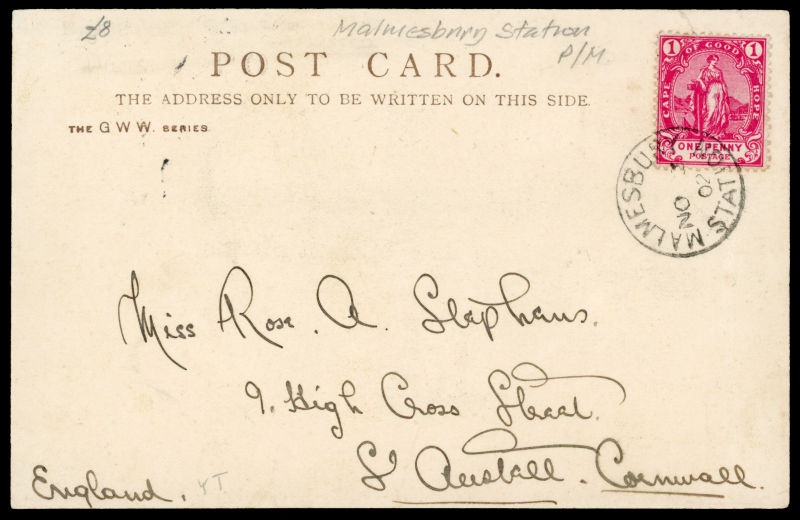 £8
Malmesbury Station
P/M.
POST CARD.
THE ADDRESS ONLY TO BE WRITTEN ON THIS SIDE.
THE G W W. SERIES
1 OF GOOD 1
CAPE HOPE
ONE PENNY
POSTAGE
MALMESBURY STATION
NO
02
Miss Rose. A. Stephens.
9. High Cross Street.
St Austell. Cornwall.
England.